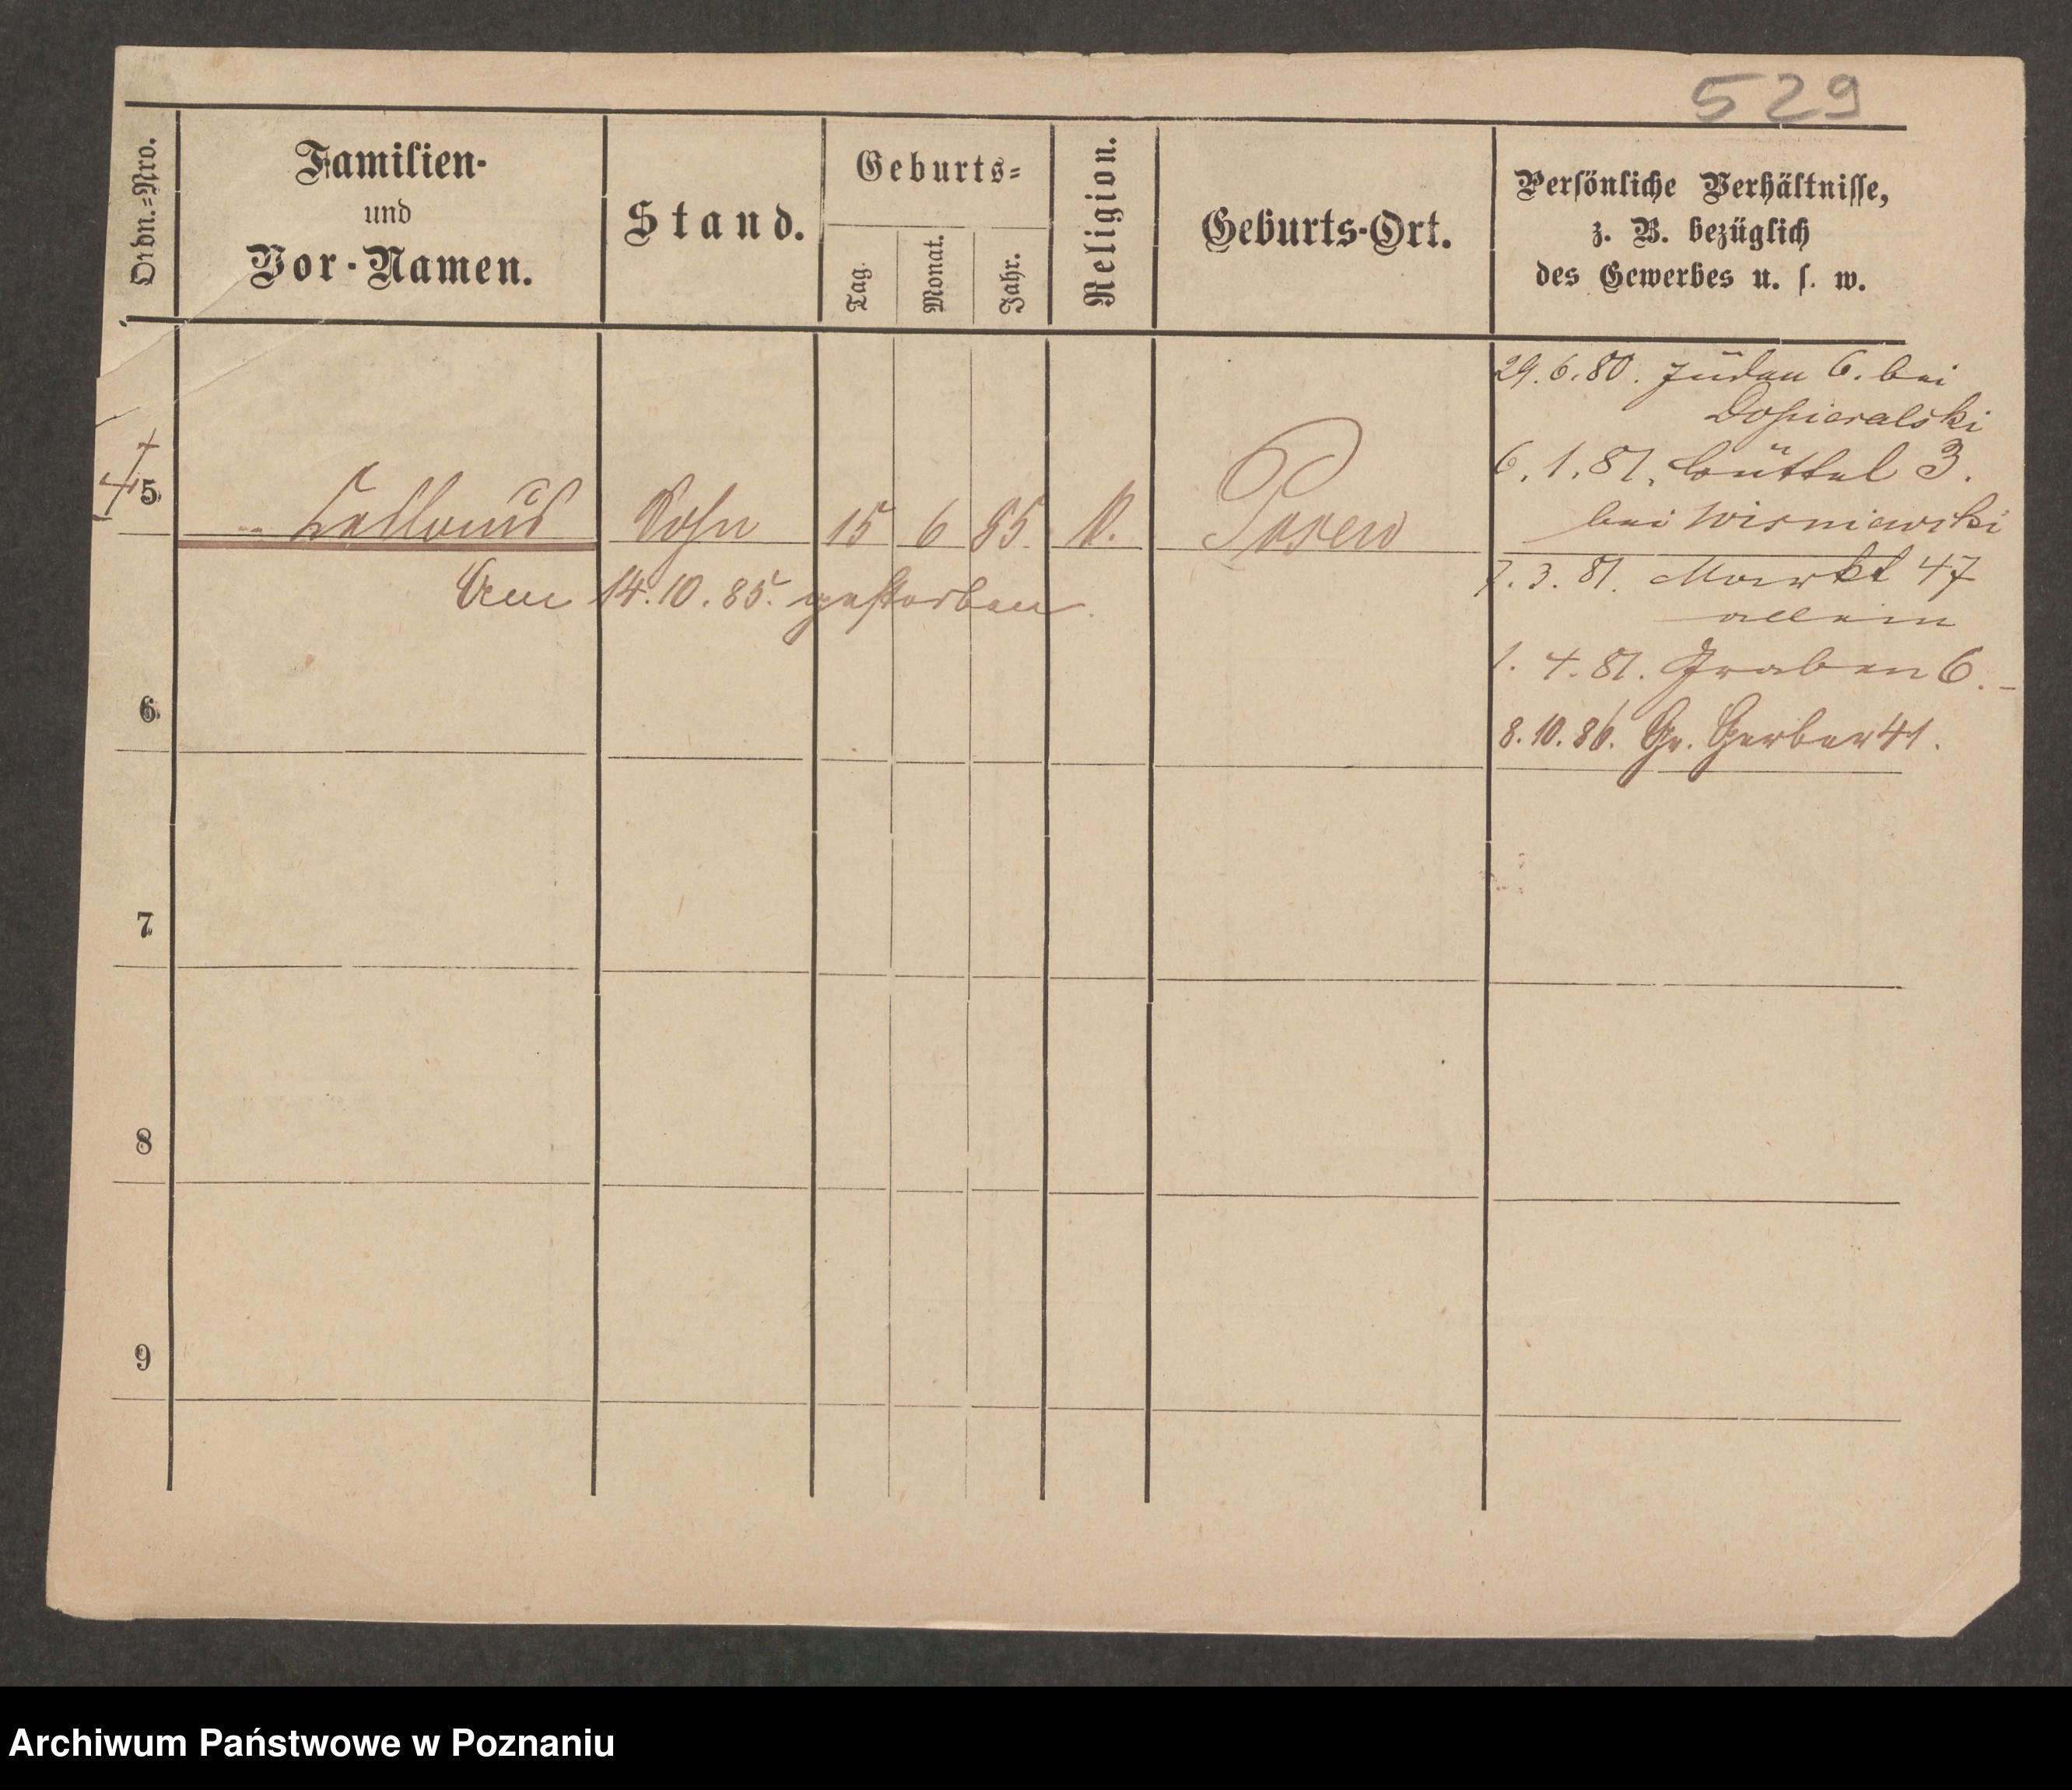 529
Ordn.=Nro.
Familien-
und
Vor-Namen.
Stand.
Geburts=
Tag.
Monat.
Jahr.
Religion.
Geburts-Ort.
Persönliche Verhältnisse,
z. B. bezüglich
des Gewerbes u. s. w.
5
Sohn 15 6 85 k. Posen
Am 14.10.85. gestorben.
29.6.80. Juden 6. bei
Dopieralski
6.1.81. Büttel 3.
bei Wisniewski
7.3.81. Markt 47
allein
1.4.81. Graben 6.-
8.10.86. Gr. Gerber 41.
6
7
8
9
Archiwum Państwowe w Poznaniu